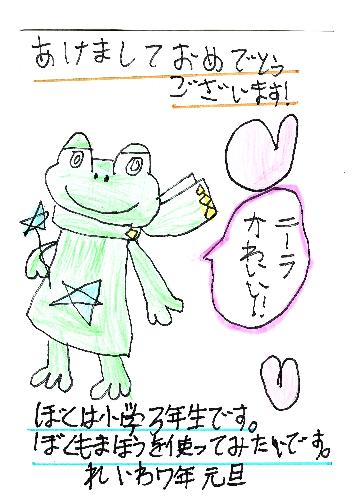 あけましておめでとう
ございます！
ニーラ
かわいい！
ぼくは小学3年生です。
ぼくもまほうを使ってみたいです。
れいわ7年 元旦